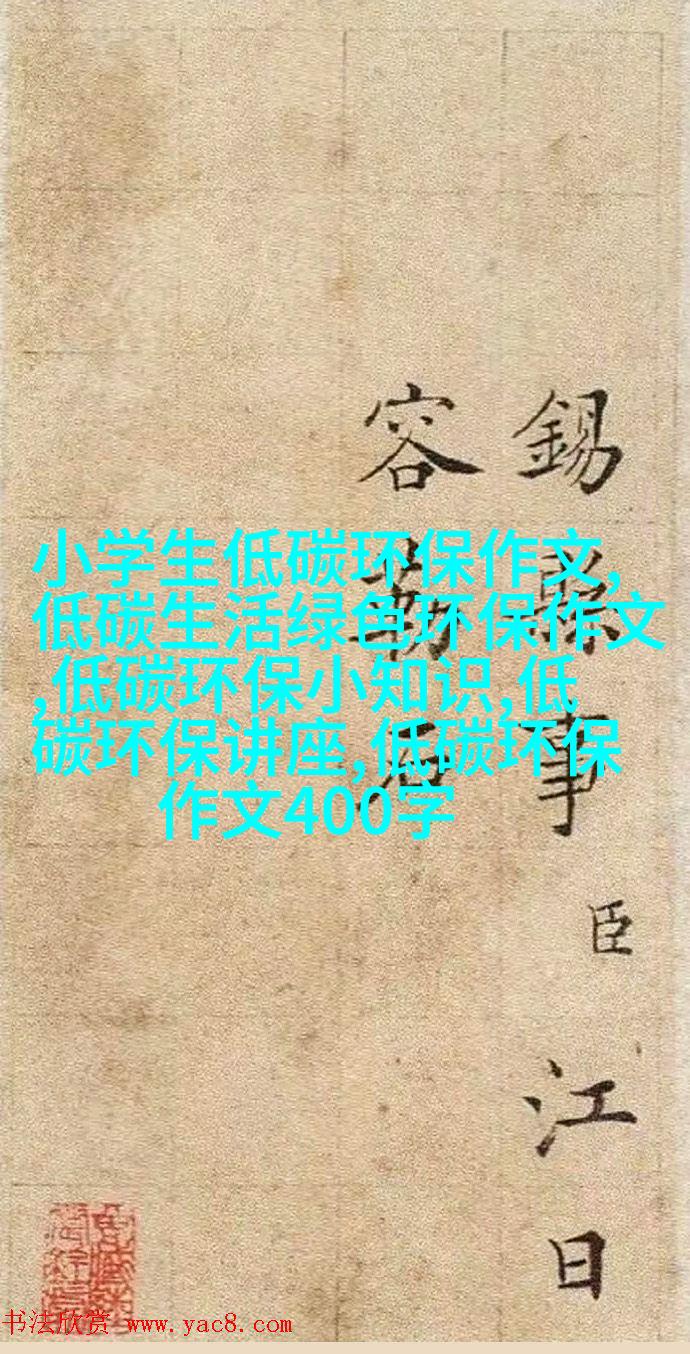 小学生低碳环保作文,
低碳生活绿色环保作文
,低碳环保小知识,低
碳环保讲座,低碳环保
作文400字
錫縣事臣江日
容勒石
书法欣赏 www.yac8.com